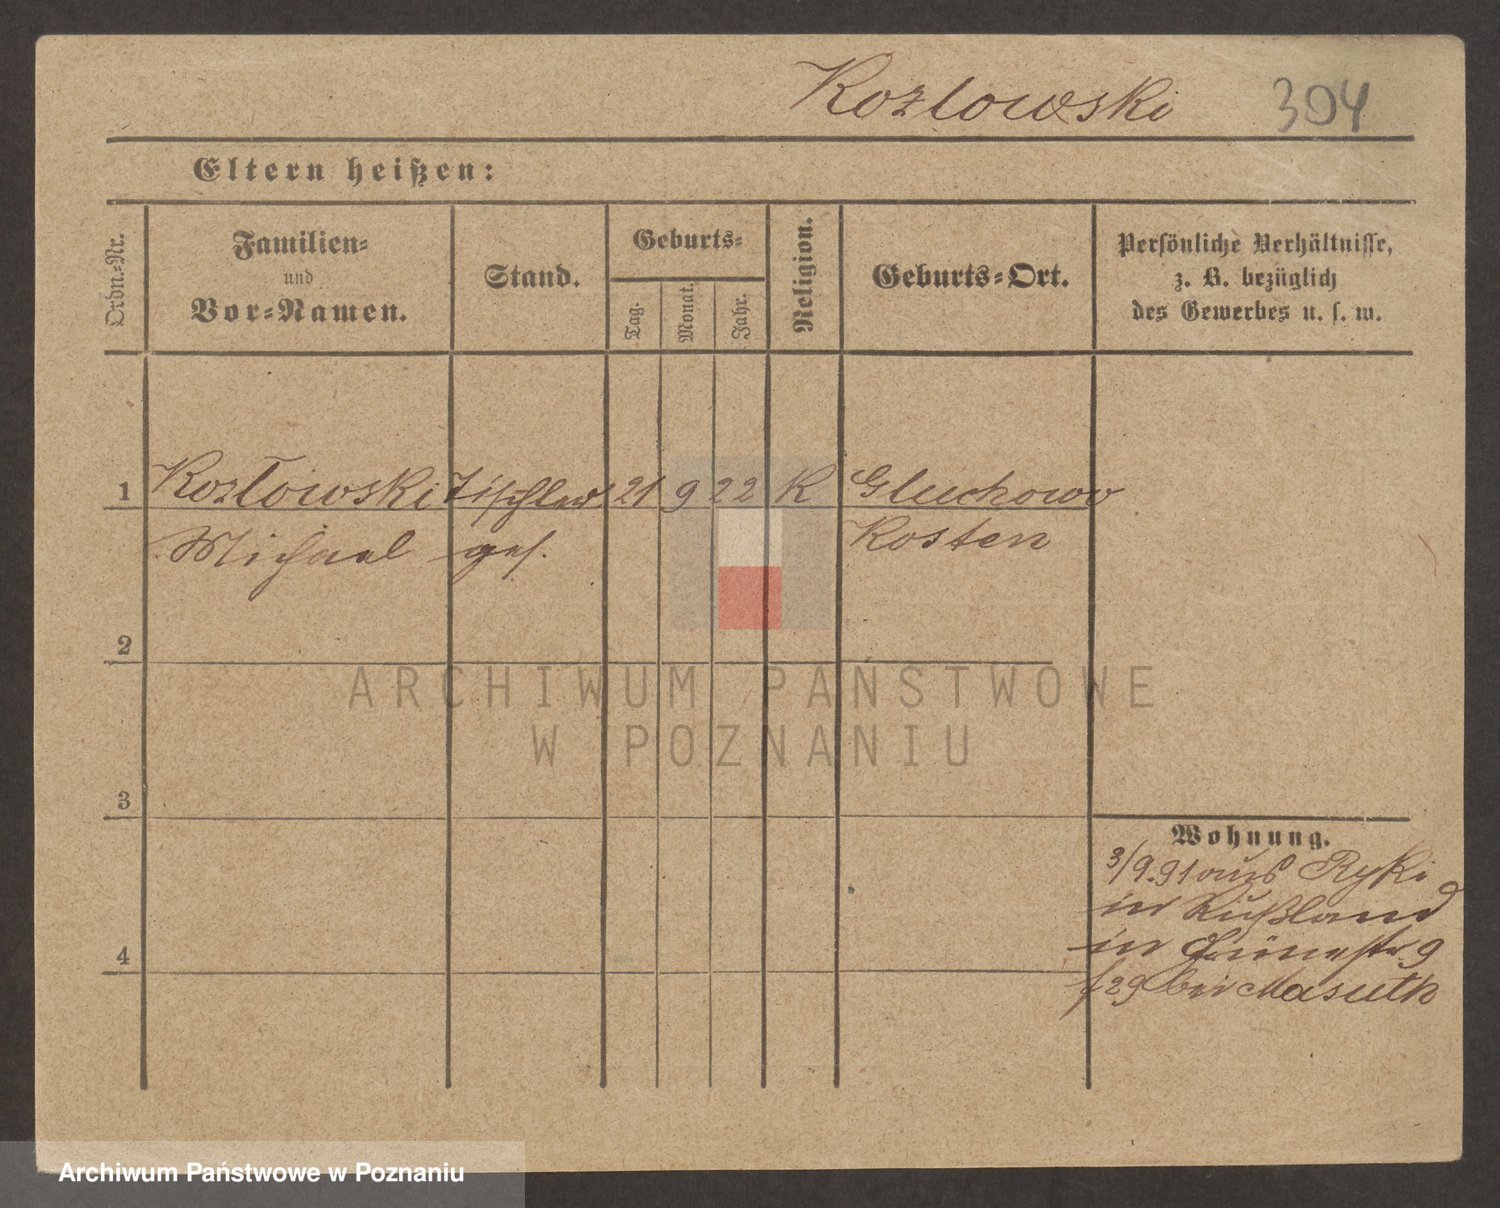 Kozlowski 394
Eltern heißen:
Ordn.=Nr.
Familien=
und
Vor=Namen.
Stand.
Geburts=
Tag.
Monat.
Jahr.
Religion.
Geburts=Ort.
Persönliche Verhältnisse,
z. B. bezüglich
des Gewerbes u. s. w.
1 Kozłowski Tischler 21 9 22 K Gluchowo
Michael ges. Kosten
2
3
4
Wohnung.
3/9.91 aus Ryki
in Rußland
in 9
bei Masuth
ARCHIWUM PAŃSTWOWE
W POZNANIU
Archiwum Państwowe w Poznaniu